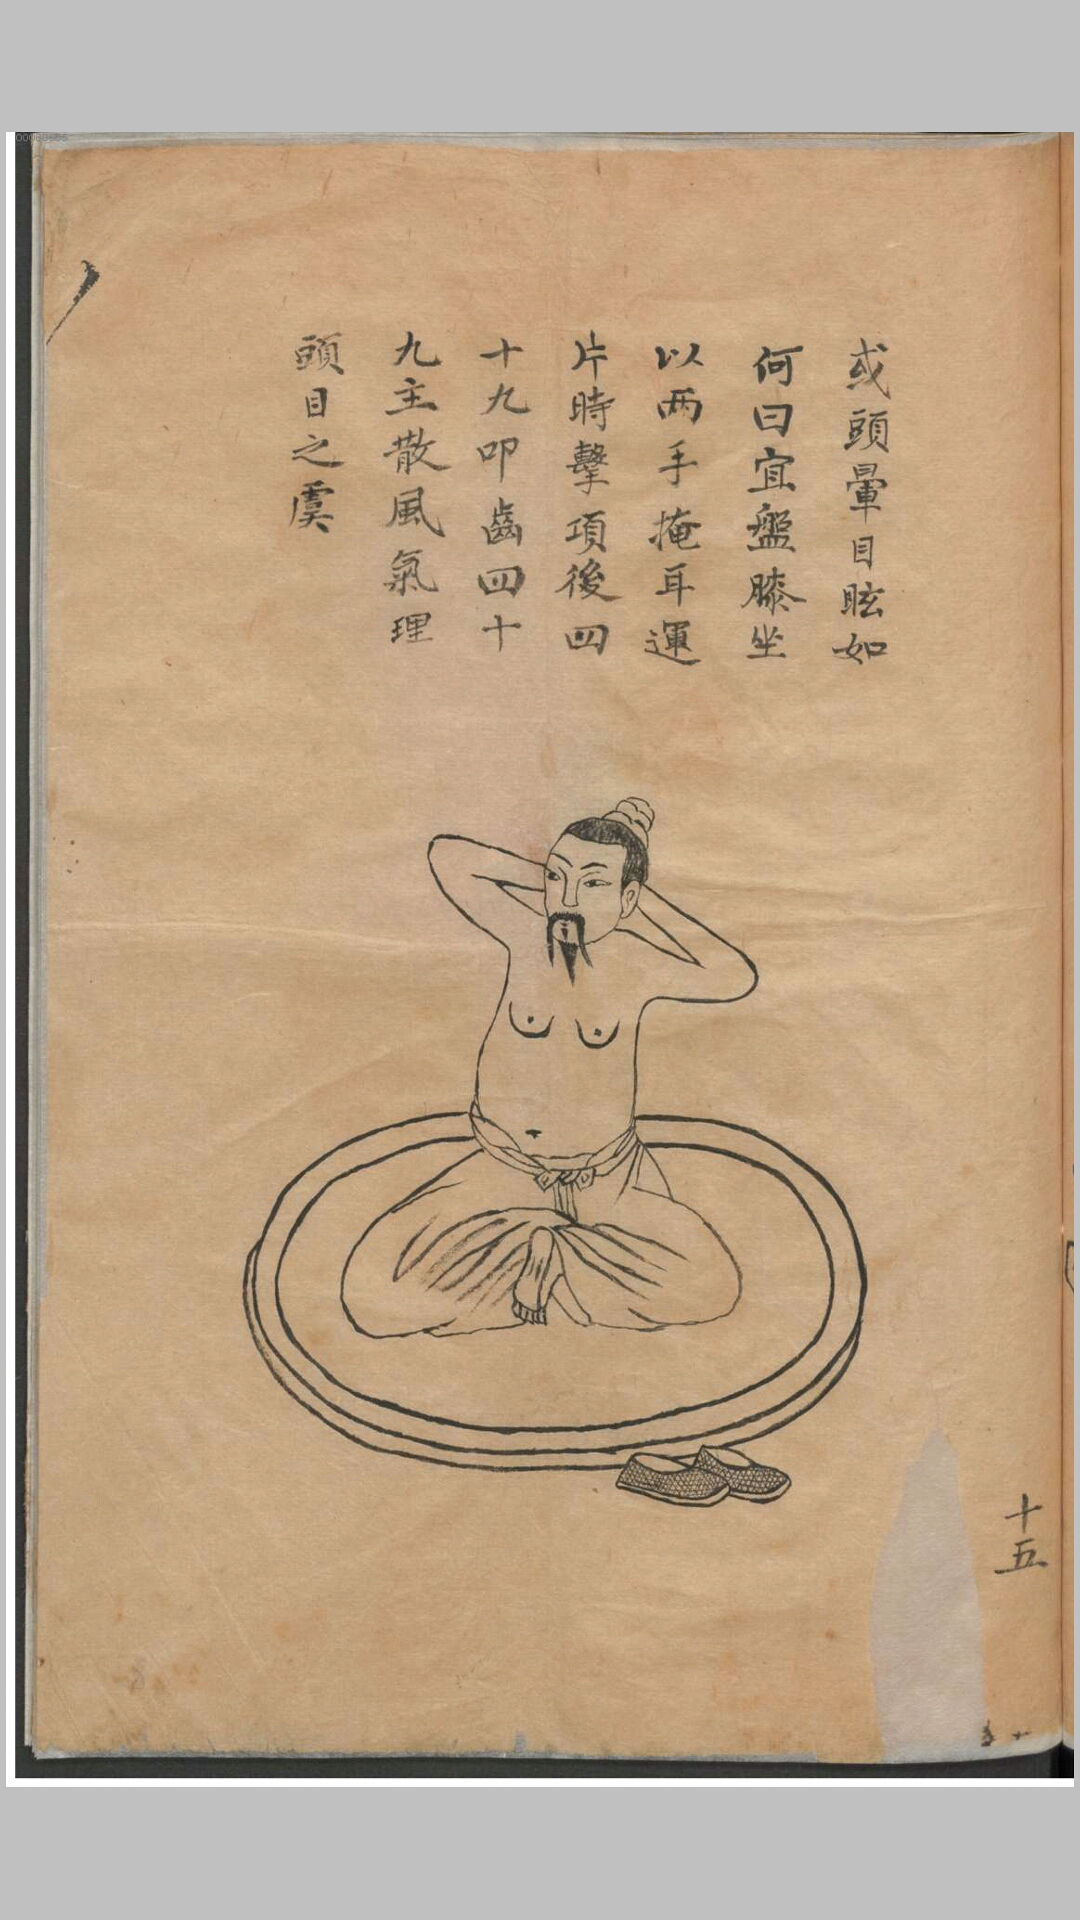 或頭暈目眩如
何曰宜盤膝坐
以两手掩耳運
片時擊項後四
十九叩齒四十
九主散風氣理
頭目之虞
十五